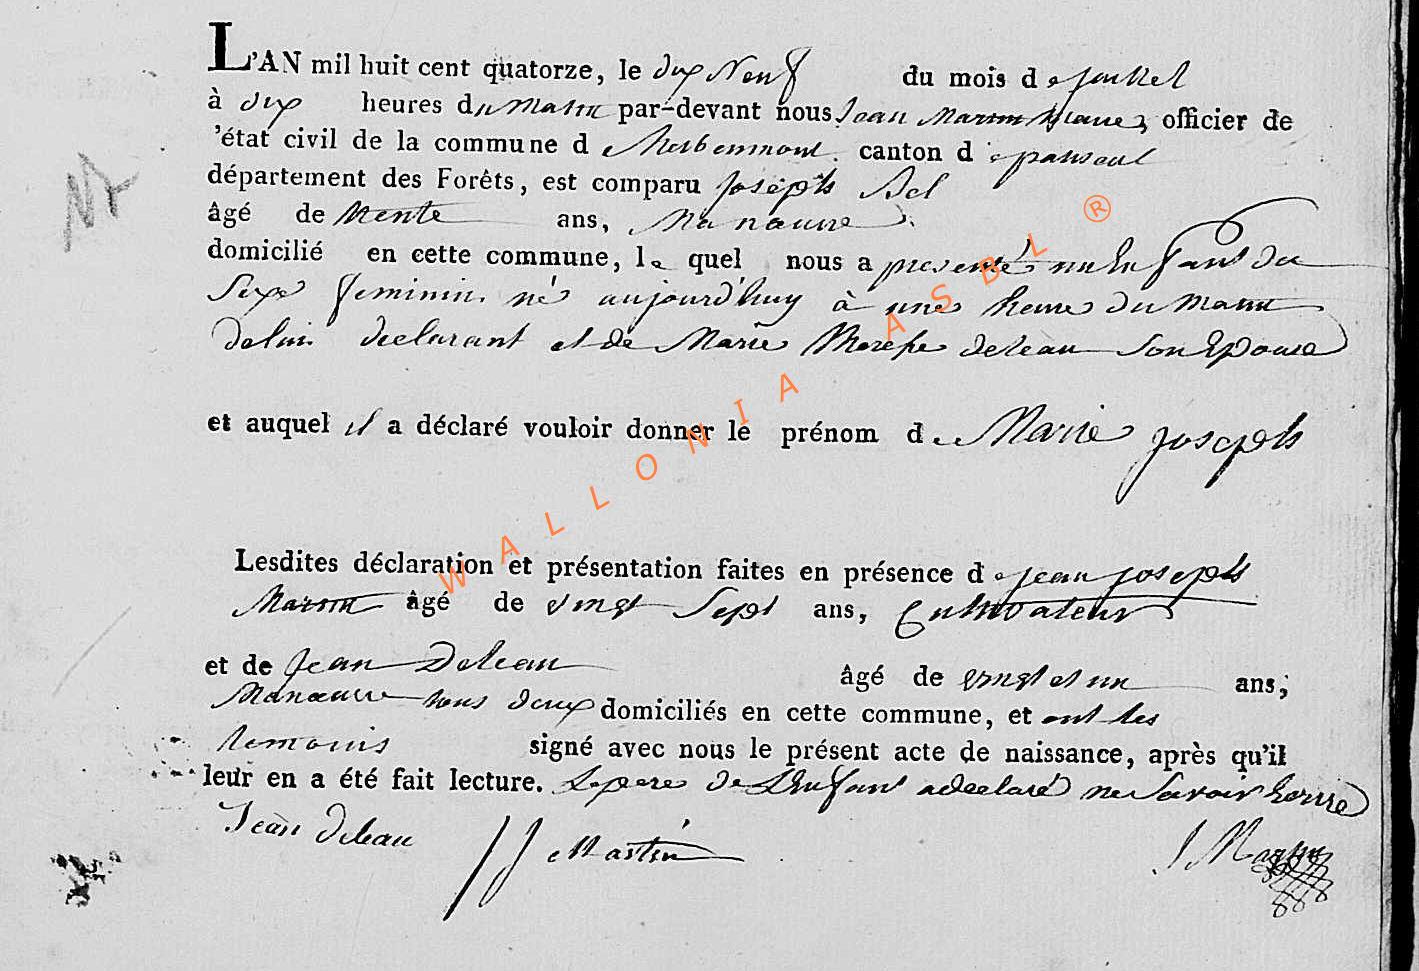 L'AN mil huit cent quatorze, le dix Neuf du mois de juillet
à dix heures du Matin par-devant nous Jean Martin Maire, officier de
'état civil de la commune d herbeumont canton de paliseul
département des Forêts, est comparu joseph Bel
âgé de trente ans, Manœuvre
domicilié en cette commune, lequel nous a presenté un Enfant du
Sexe feminin né aujourd'huy à une heure du Matin
de lui declarant et de Marie Therese deleau Son Epouse
et auquel il a déclaré vouloir donner le prénom de Marie joseph
Lesdites déclaration et présentation faites en présence de jean joseph
Martin âgé de vingt Sept ans, Cultivateur
et de jean Deleau âgé de vingt et un ans,
Manœuvre tous deux domiciliés en cette commune, et ont les
temoins signé avec nous le présent acte de naissance, après qu'il
leur en a été fait lecture. Le pere de L'Enfant a declaré ne Savoir Ecrire
Jean Deleau JJ Martin J Martin
WALLONIA ASBL ®